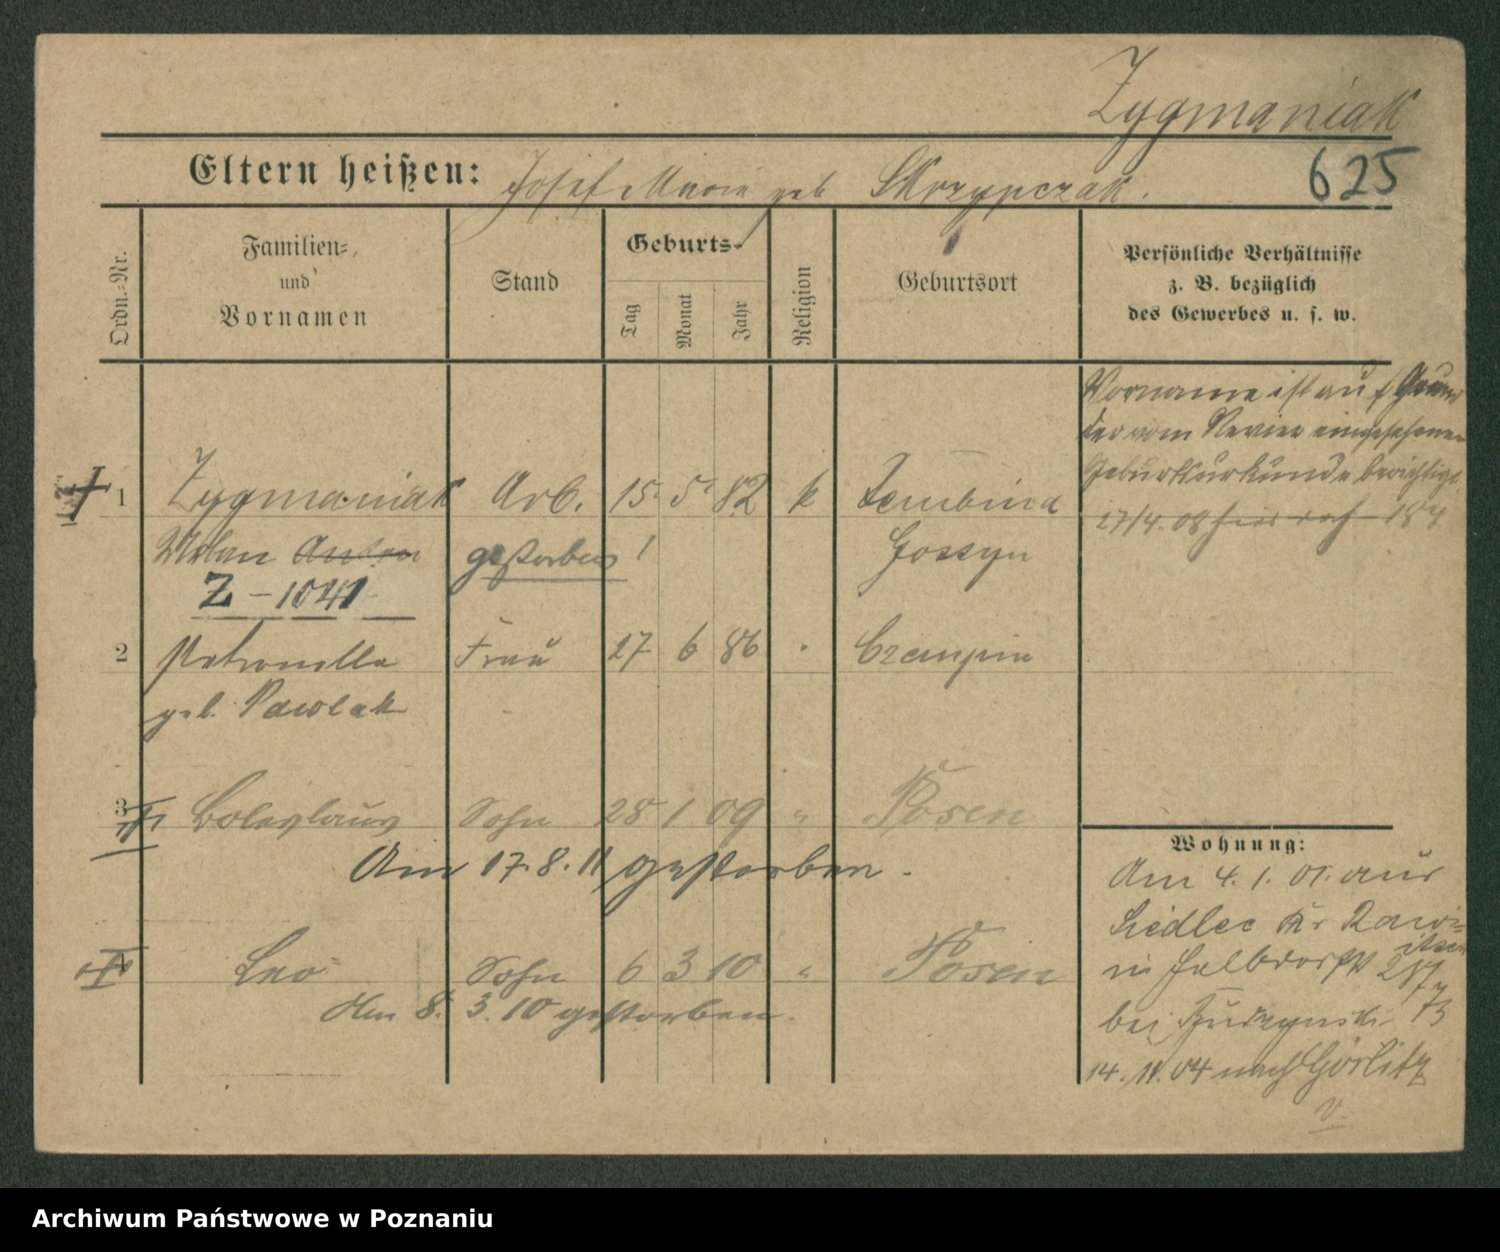 Zygmaniak
Eltern heißen: Josef Marie geb Skrzypczak.
625
Ordn.-Nr.
Familien- und Vornamen
Stand
Geburts-
Tag
Monat
Jahr
Religion
Geburtsort
Persönliche Verhältnisse
z. B. bezüglich
des Gewerbes u. s. w.
Vorname ist auf Grund
der vom Revier eingesehenen
Geburtsurkunde berichtigt.
27/4. 08
1 Zygmaniak Arb. 15 5 82 k Zembina
Anton gestorben! Gostyn
Z - 1041
2 Petronella Frau 27 6 86 " Czempin
geb. Pawlak
3 Boleslaus Sohn 28 1 09 " Posen
Am 17.8.11 gestorben.
4 Leo Sohn 6 3 10 " Posen
Am 8. 3. 10 gestorben.
Wohnung:
Am 4. 1. 01. aus
Siedlec Kr. Rawitsch
in
bei
14. 11. 04 nach Görlitz
v.
Archiwum Państwowe w Poznaniu